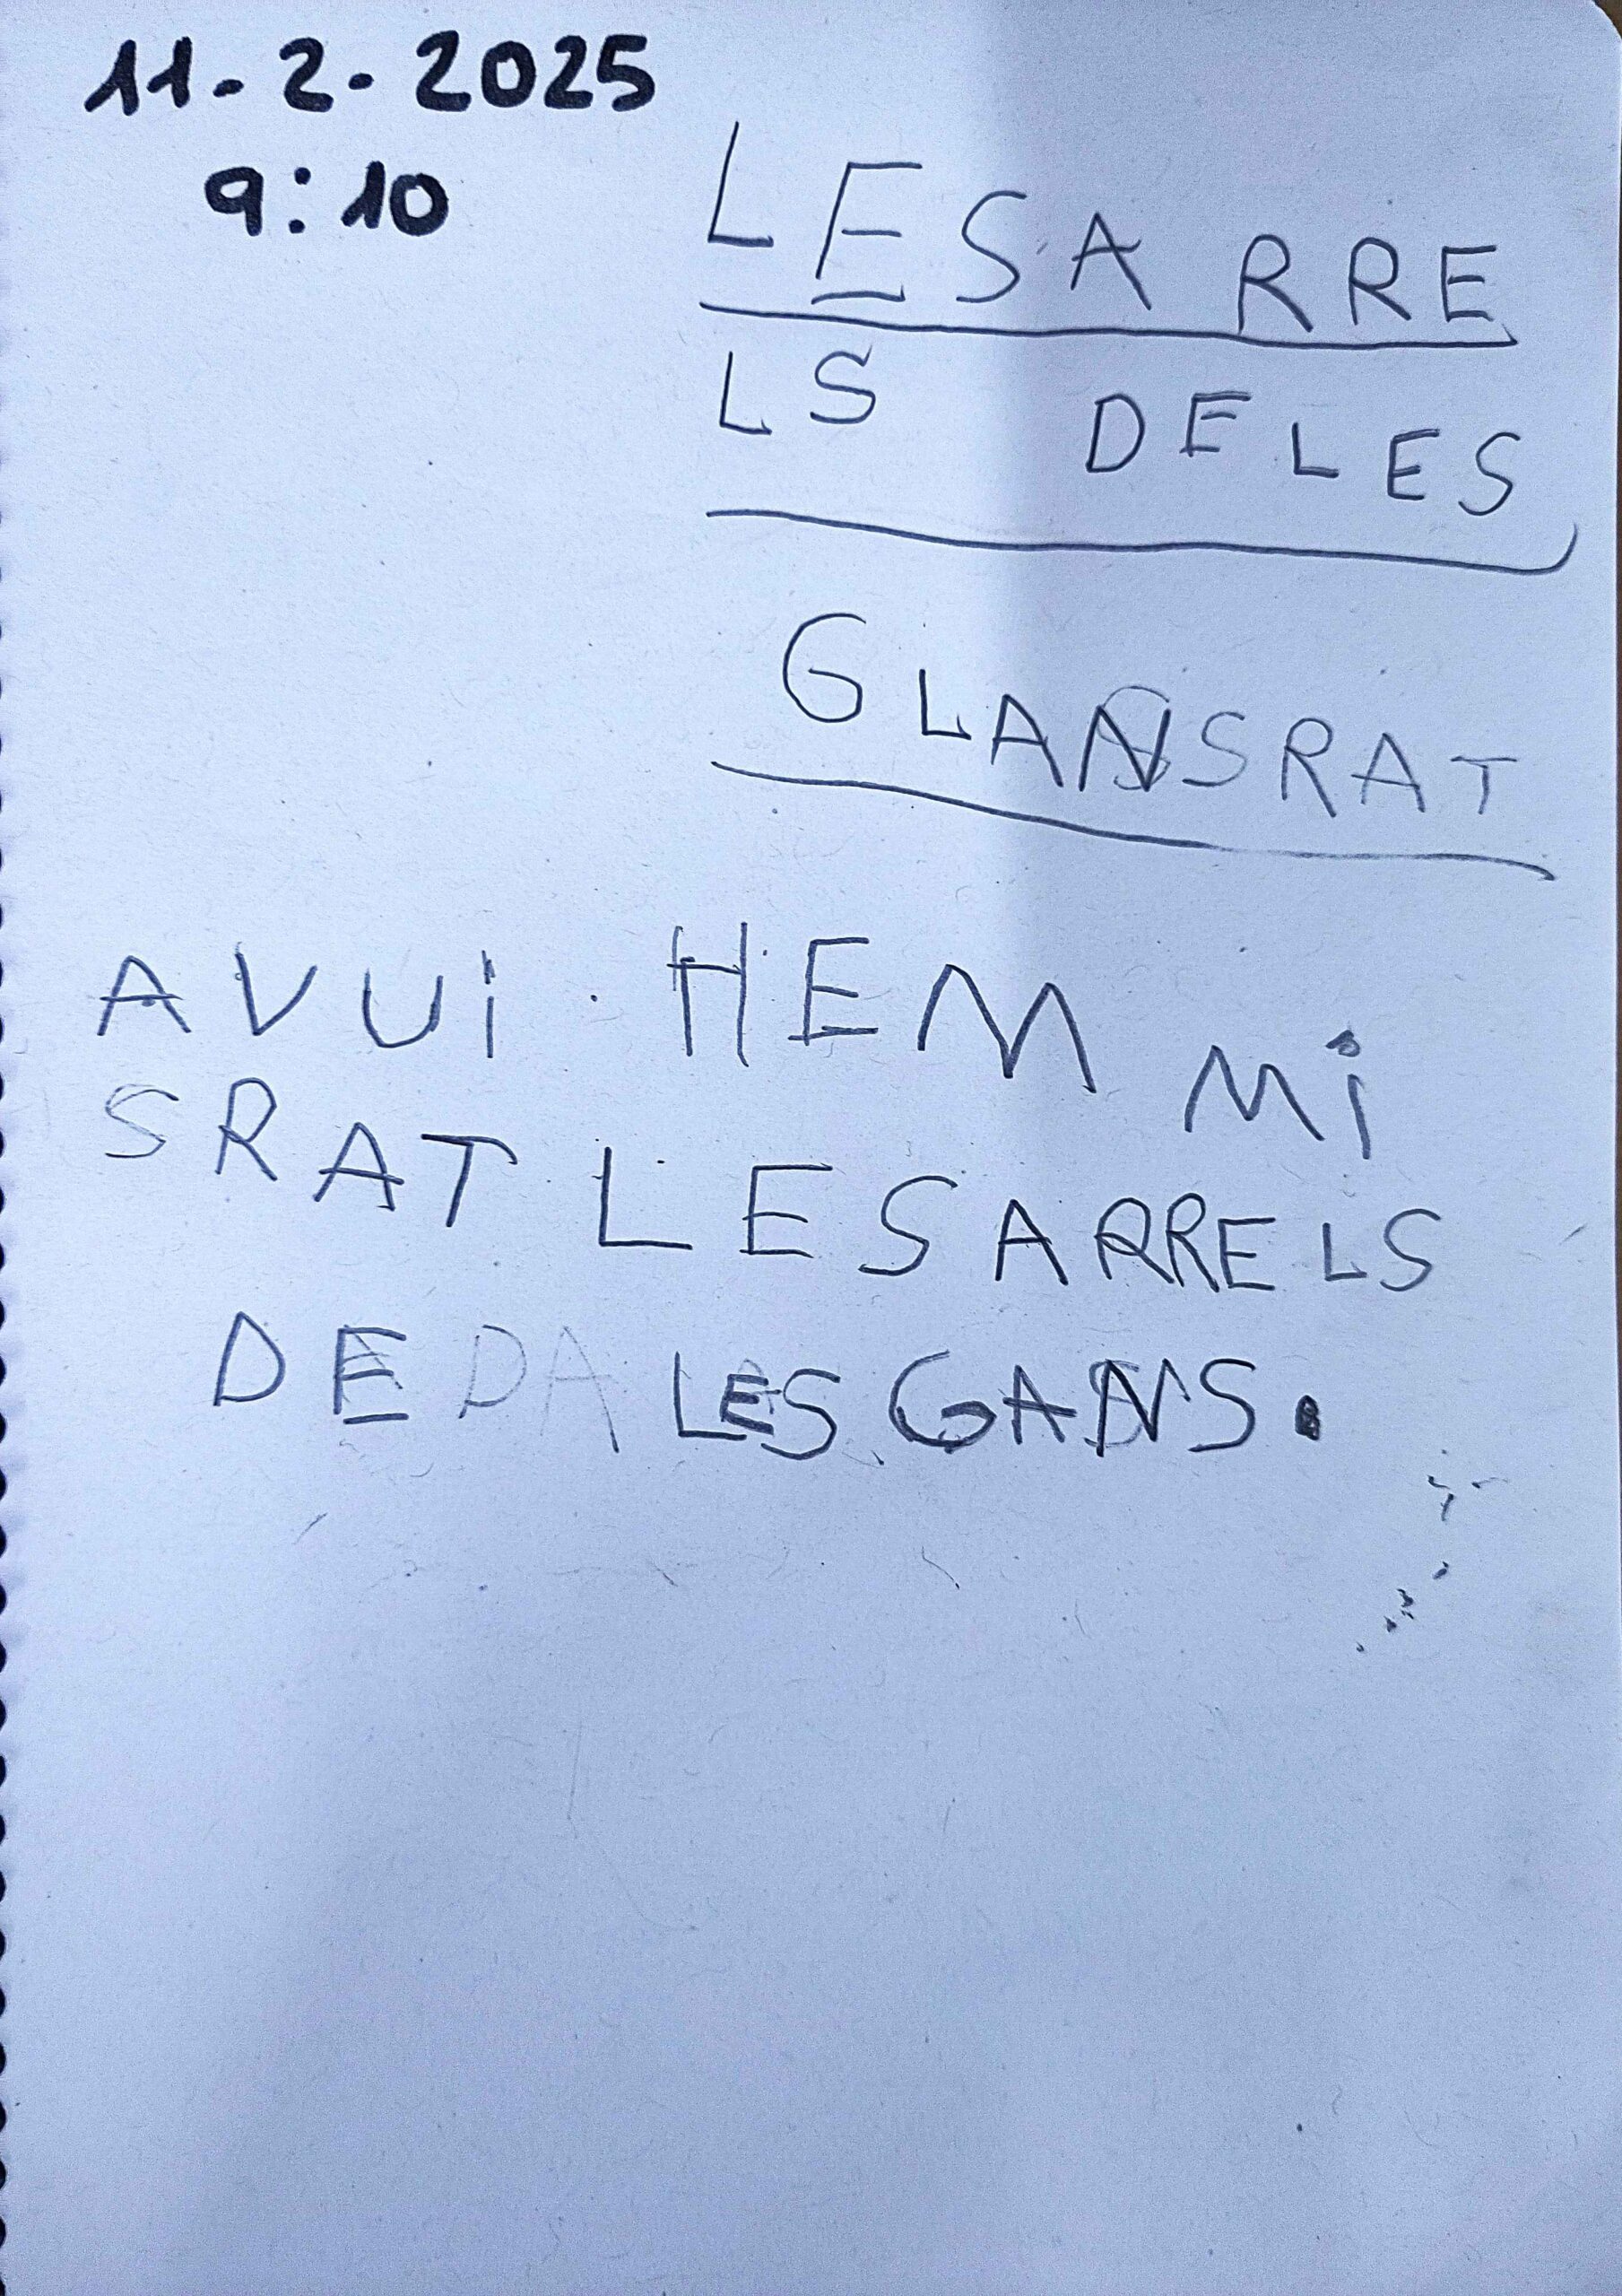 11-2-2025
9:10
LESARRE
LS DELES
GLANSRAT
AVUi HEM Mi
SRAT LESARRELS
DE LES GANS.